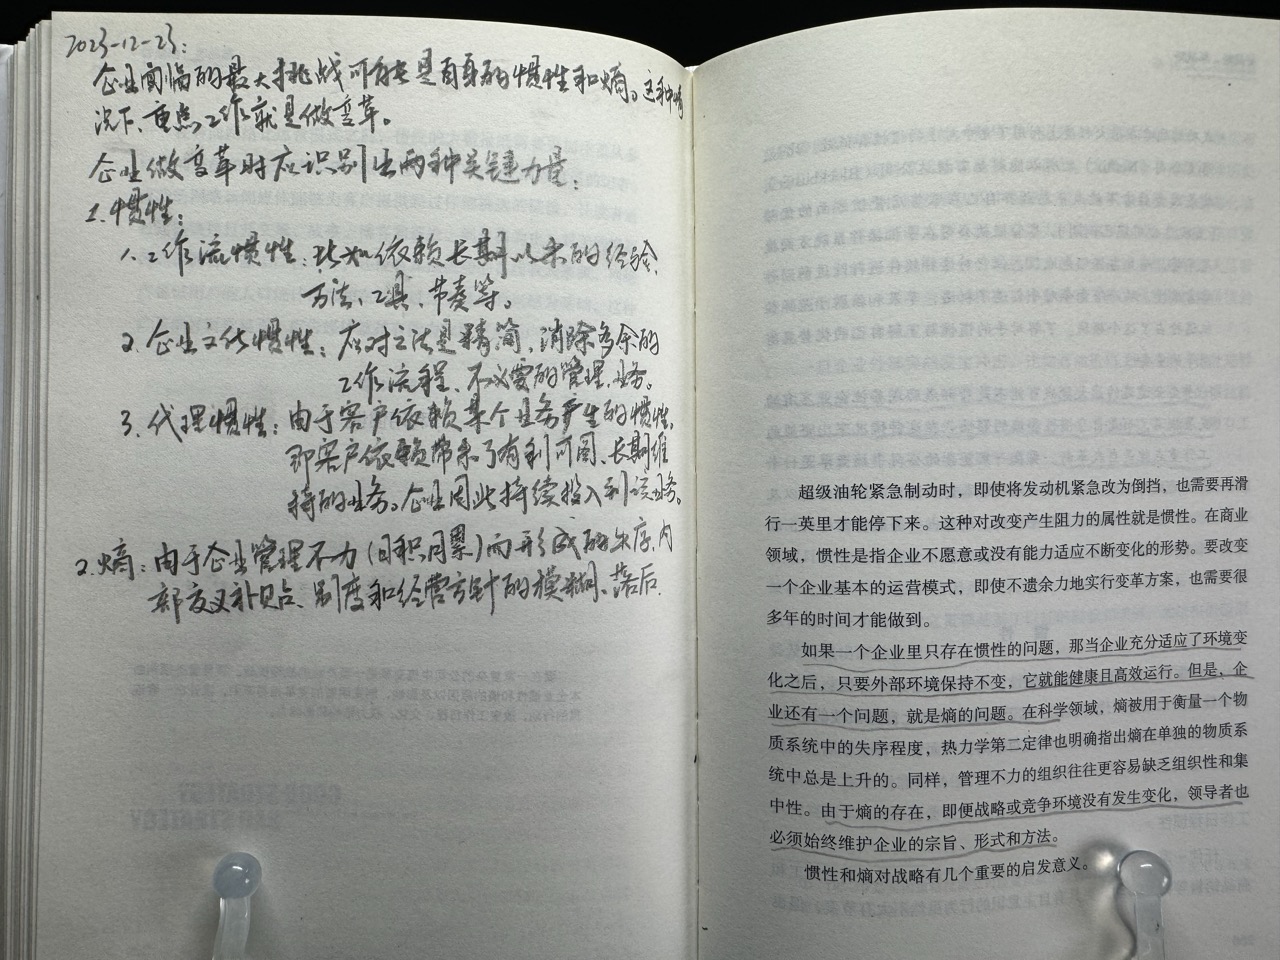 2023-12-23:
企业面临的最大挑战可能是自身的惯性和熵。这种情
况下、重点工作就是做变革。
企业做变革时应识别出两种关键力量:
1.惯性:
1.工作流惯性:比如依赖长期以来的经验、
方法、工具、节奏等。
2.企业文化惯性:应对之法是精简,消除多余的
工作流程、不必要的管理、业务。
3.代理惯性:由于客户依赖某个业务产生的惯性,
即客户依赖带来了有利可图、长期维
持的业务。企业因此持续投入到该业务。
2.熵:由于企业管理不力(日积月累)而形成的失序,内
部交叉补贴、制度和经营方针的模糊、落后.
超级油轮紧急制动时,即使将发动机紧急改为倒挡,也需要再滑
行一英里才能停下来。这种对改变产生阻力的属性就是惯性。在商业
领域,惯性是指企业不愿意或没有能力适应不断变化的形势。要改变
一个企业基本的运营模式,即使不遗余力地实行变革方案,也需要很
多年的时间才能做到。
如果一个企业里只存在惯性的问题,那当企业充分适应了环境变
化之后,只要外部环境保持不变,它就能健康且高效运行。但是,企
业还有一个问题,就是熵的问题。在科学领域,熵被用于衡量一个物
质系统中的失序程度,热力学第二定律也明确指出熵在单独的物质系
统中总是上升的。同样,管理不力的组织往往更容易缺乏组织性和集
中性。由于熵的存在,即便战略或竞争环境没有发生变化,领导者也
必须始终维护企业的宗旨、形式和方法。
惯性和熵对战略有几个重要的启发意义。